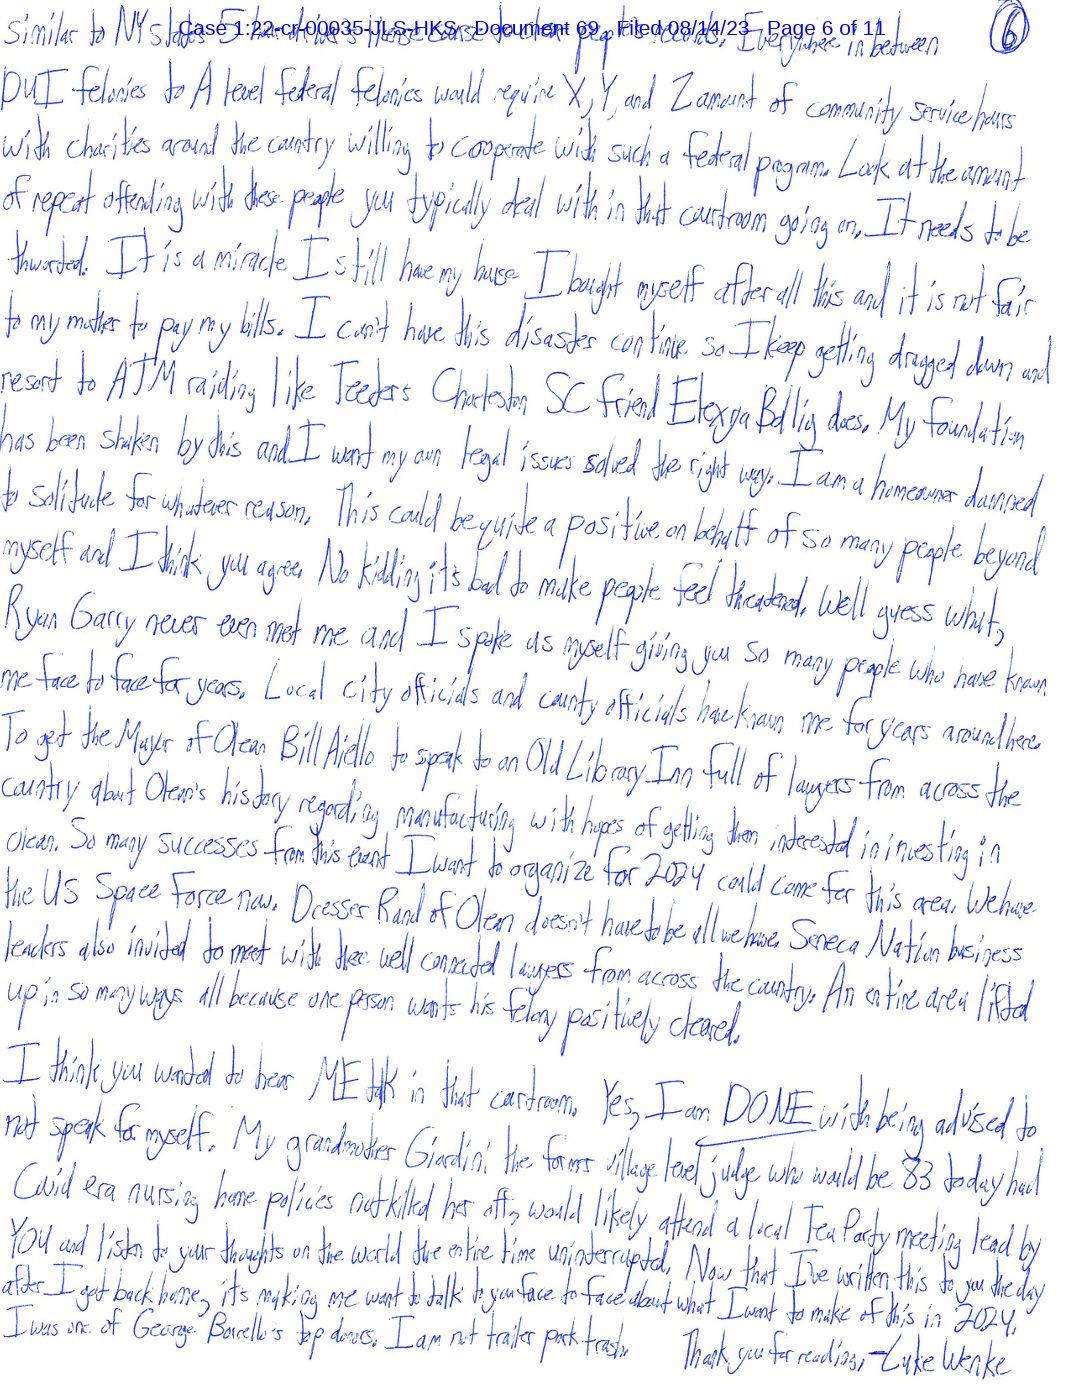 Case 1:22-cr-00035-JLS-HKS Document 69 Filed 08/14/23 Page 6 of 11
6
Similar to NY states 5 House to people's records. Everywhere in between
DUI felonies to A level federal felonies would require X, Y, and Z amount of community service hours
with charities around the country willing to cooperate with such a federal program. Look at the amount
of repeat offending with these people you typically deal with in that courtroom going on. It needs to be
thworted. It is a miracle I still have my house I bought myself after all this and it is not fair
to my mother to pay my bills. I can't have this disaster continue so I keep getting dragged down and
resort to ATM raiding like Teeter's Charleston SC friend does. My foundation
has been shaken by this and I want my own legal issues solved the right way. I am a homeowner damned
to solitude for whatever reason. This could be quite a positive on behalf of so many people beyond
myself and I think you agree. No kidding it's bad to make people feel threatened. Well guess what,
Ryan Garry never even met me and I spoke as myself giving you so many people who have known
me face to face for years. Local city officials and county officials have known me for years around here.
To get the Mayor of Olean Bill Aiello to speak to an Old Library Inn full of lawyers from across the
country about Olean's history regarding manufacturing with hopes of getting them interested in investing in
Olean. So many successes from this event I want to organize for 2024 could come for this area. We have
the US Space Force now. Dresser Rand of Olean doesn't have to be all we have. Seneca Nation business
leaders also invited to meet with these well connected lawyers from across the country. An entire area lifted
up in so many ways all because one person wants his felony positively cleared.
I think you wanted to hear ME talk in that courtroom. Yes, I am DONE with being advised to
not speak for myself. My grandmother Giardini the former village level judge who would be 83 today had
Covid era nursing home policies not killed her off, would likely attend a local Tea Party meeting lead by
YOU and listen to your thoughts on the world the entire time uninterrupted. Now that I've written this to you the day
after I got back home, it's making me want to talk to you face to face about what I want to make of this in 2024.
I was one of George Borrello's top donors. I am not trailer park trash. Thank you for reading, -Luke Wenke